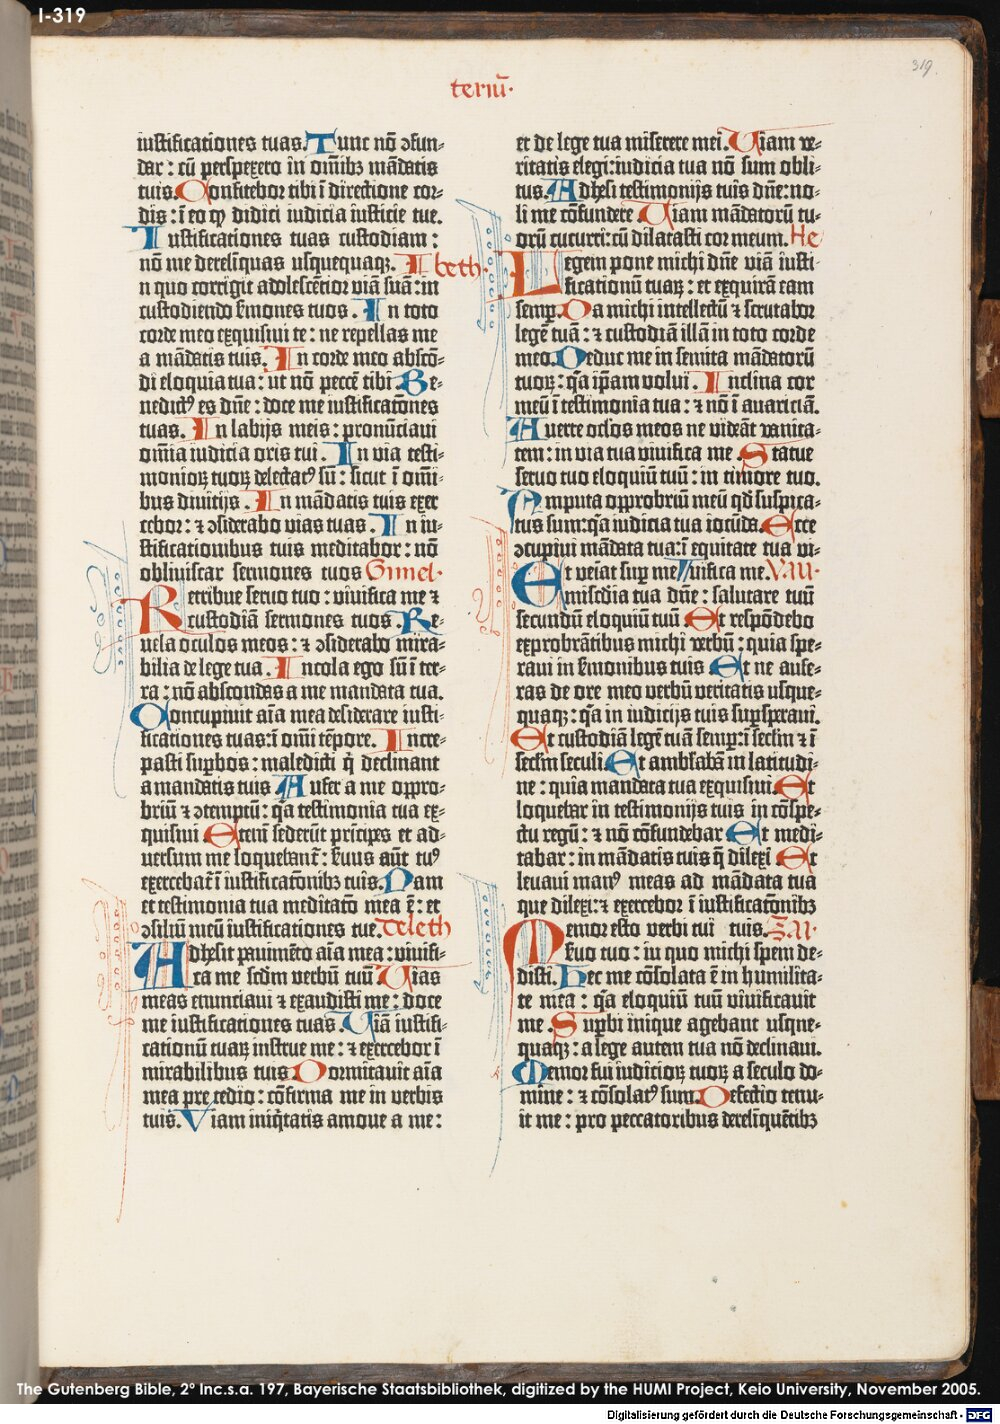 I-319
319
teriū·
iustificationes tuas. Tunc nō ↄfun-
dar : cū perspexero in om̄ibꝫ mādatis
tuis. Confitebor tibi ī directione cor-
dis : ī eo ꝙ didici iudicia iusticie tue.
Iustificationes tuas custodiam :
nō me derelīquas usquequaqꝫ. beth·
In quo corrigit adolescētior viā suā : in
custodiendo s̄mones tuos. In toto
corde meo exquisiui te : ne repellas me
a mādatis tuis. In corde meo abscō-
di eloquia tua : ut nō peccē tibi. Be-
nedictꝰ es dn̄e : doce me iustificatōnes
tuas. In labijs meis : pronūciaui
om̄ia iudicia oris tui. In via testi-
monioꝝ tuoꝝ delectatꝰ sū : sicut ī om̄i-
bus diuitijs. In mādatis tuis exer
cebor : ⁊ ↄsiderabo vias tuas. In iu-
stificationibus tuis meditabor : nō
obliuiscar sermones tuos Gimel·
Retribue seruo tuo : viuifica me ⁊
custodiā sermones tuos. Re-
uela oculos meos : ⁊ ↄsiderabo mira-
bilia de lege tua. Incola ego sū ī ter-
ra : nō abscondas a me mandata tua.
Concupiuit aīa mea desiderare iusti-
ficationes tuas : ī om̄i tēpore. Incre-
pasti suꝑbos : maledicti q̇ declinant
a mandatis tuis Aufer a me oppro-
briū ⁊ ↄtemptū : q̄a testimonia tua ex-
quisiui Eteni sederūt prīcipes et ad-
uersum me loquebant᷑ : s̄uus aūt tuꝰ
exercebat᷑ ī iustificatōnibꝫ tuis. Nam
et testimonia tua meditatō mea ē : et
ↄsiliū meū iustificationes tue. Deleth
Adhesit pauimēto aīa mea : viuifi-
ca me scd̄m verbū tuū Vias
meas enunciaui ⁊ exaudisti me : doce
me iustificationes tuas. Viā iustifi-
cationū tuaꝝ instrue me : ⁊ exercebor ī
mirabilibus tuis Dormitauit aīa
mea pre tedio : cōfirma me in verbis
tuis. Viam iniq̇tatis amoue a me :
et de lege tua miserere mei. Viam ve-
ritatis elegi : iudicia tua nō sum obli-
tus. Adhesi testimonijs tuis dn̄e : no-
li me cōfundere. Viam mādatorū tu-
orū cucurri : cū dilatasti cor meum. He
Legem pone michi dn̄e viā iusti-
ficationū tuaꝝ : et exquirā eam
semꝑ. Da michi intellectū ⁊ scrutabor
legē tuā : ⁊ custodiā illā in toto corde
meo. Deduc me in semita mādatorū
tuoꝝ : q̄a ip̄am volui. Inclina cor
meū ī testimonia tua : ⁊ nō ī auariciā.
Auerte oclos meos ne videāt vanita-
tem : in via tua viuifica me. Statue
seruo tuo eloquiū tuū : in timore tuo.
Amputa opprobriū meū qd̄ suspica-
tus sum : q̄a iudicia tua iocūda. Ecce
ↄcupiui mādata tua : ī equitate tua vi-
uifica me. Vau·
Et veniat suꝑ me
misc̄dia tua dn̄e : salutare tuū
secundū eloquiū tuū Et respōdebo
exprobrātibus michi verbū : quia spe-
raui in s̄monibus tuis Et ne aufe-
ras de ore meo verbū veritatis usque-
quaqꝫ : q̄a in iudicijs tuis suꝑsperaui.
Et custodiā legē tuā semꝑ : ī secl̄m ⁊ ī
secl̄m seculi. Et ambl̄abā in latitudi-
ne : quia mandata tua exquisiui. Et
loquebar in testimonijs tuis in cōspe-
ctu regū : ⁊ nō cōfundebar Et medi-
tabar : in mādatis tuis q̄ dilexi Et
leuaui manꝰ meas ad mādata tua
que dilexi : ⁊ exercebor ī iustificatōnibꝫ
tuis. Zai·
Memor esto verbi tui
s̄uo tuo : in quo michi spem de-
disti. Hec me cōsolata ē in humilita-
te mea : q̄a eloquiū tuū viuificauit
me. Suꝑbi inique agebant usque-
quaqꝫ : a lege autem tua nō declinaui.
Memor fui iudicioꝝ tuoꝝ a seculo do-
mine : ⁊ cōsolatꝰ sum. Defectio tenu-
it me : pro peccatoribus derelīquētibꝫ
The Gutenberg Bible, 2º Inc.s.a. 197, Bayerische Staatsbibliothek, digitized by the HUMI Project, Keio University, November 2005.
Digitalisierung gefördert durch die Deutsche Forschungsgemeinschaft - DFG